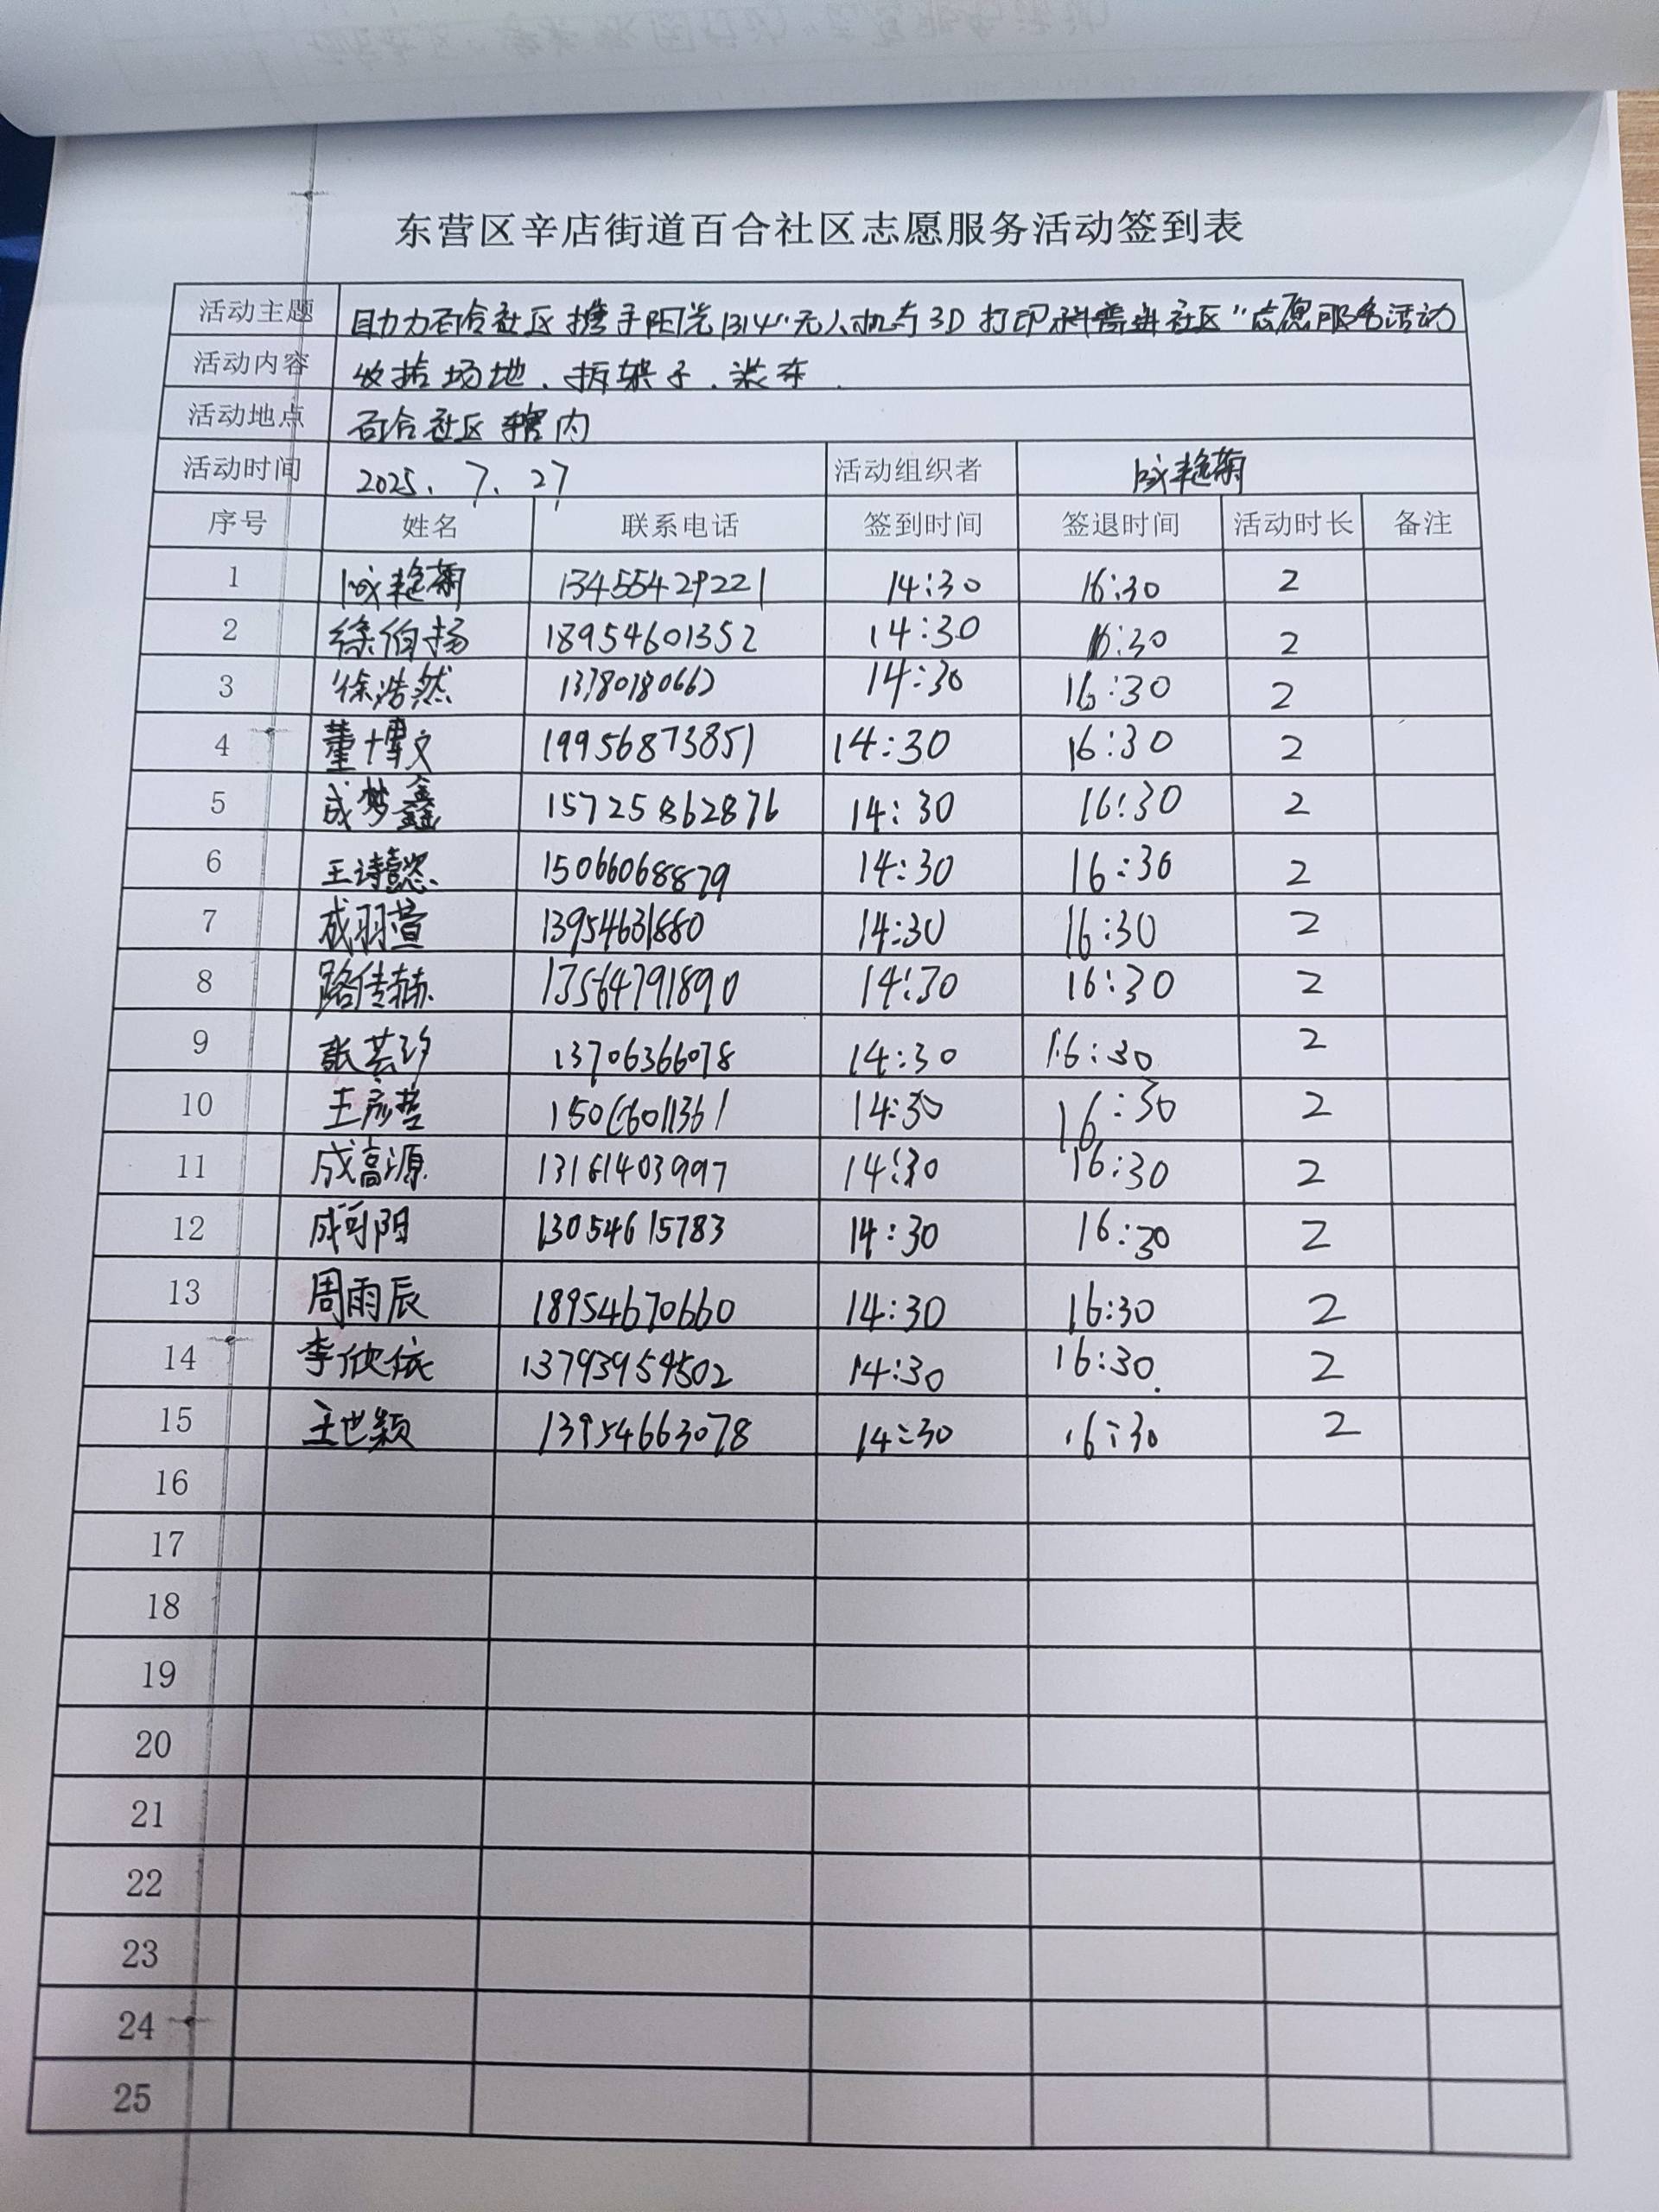 东营区辛店街道百合社区志愿服务活动签到表
活动主题 助力百合社区携手阳光1314"无人机与3D打印科普进社区"志愿服务活动
活动内容 收拾场地、拆架子、装车.
活动地点 百合社区辖内
活动时间 2025、7、27 活动组织者 成艳菊
序号 姓名 联系电话 签到时间 签退时间 活动时长 备注
1 成艳菊 13455429221 14:30 16:30 2
2 徐伯扬 18954601352 14:30 16:30 2
3 徐浩然 14:30 16:30 2
4 董博文 19956873851 14:30 16:30 2
5 成梦鑫 15725862876 14:30 16:30 2
6 王诗懿 15066068879 14:30 16:30 2
7 成羽萱 13954631880 14:30 16:30 2
8 路传赫 13564791890 14:30 16:30 2
9 张芸汐 13706366078 14:30 16:30 2
10 王彦哲 15066011361 14:30 16:30 2
11 成高源 13181403997 14:30 16:30 2
12 成可阳 13054615783 14:30 16:30 2
13 周雨辰 18954670660 14:30 16:30 2
14 李欣依 13793954502 14:30 16:30 2
15 王世颖 13954663078 14:30 16:30 2
16
17
18
19
20
21
22
23
24
25